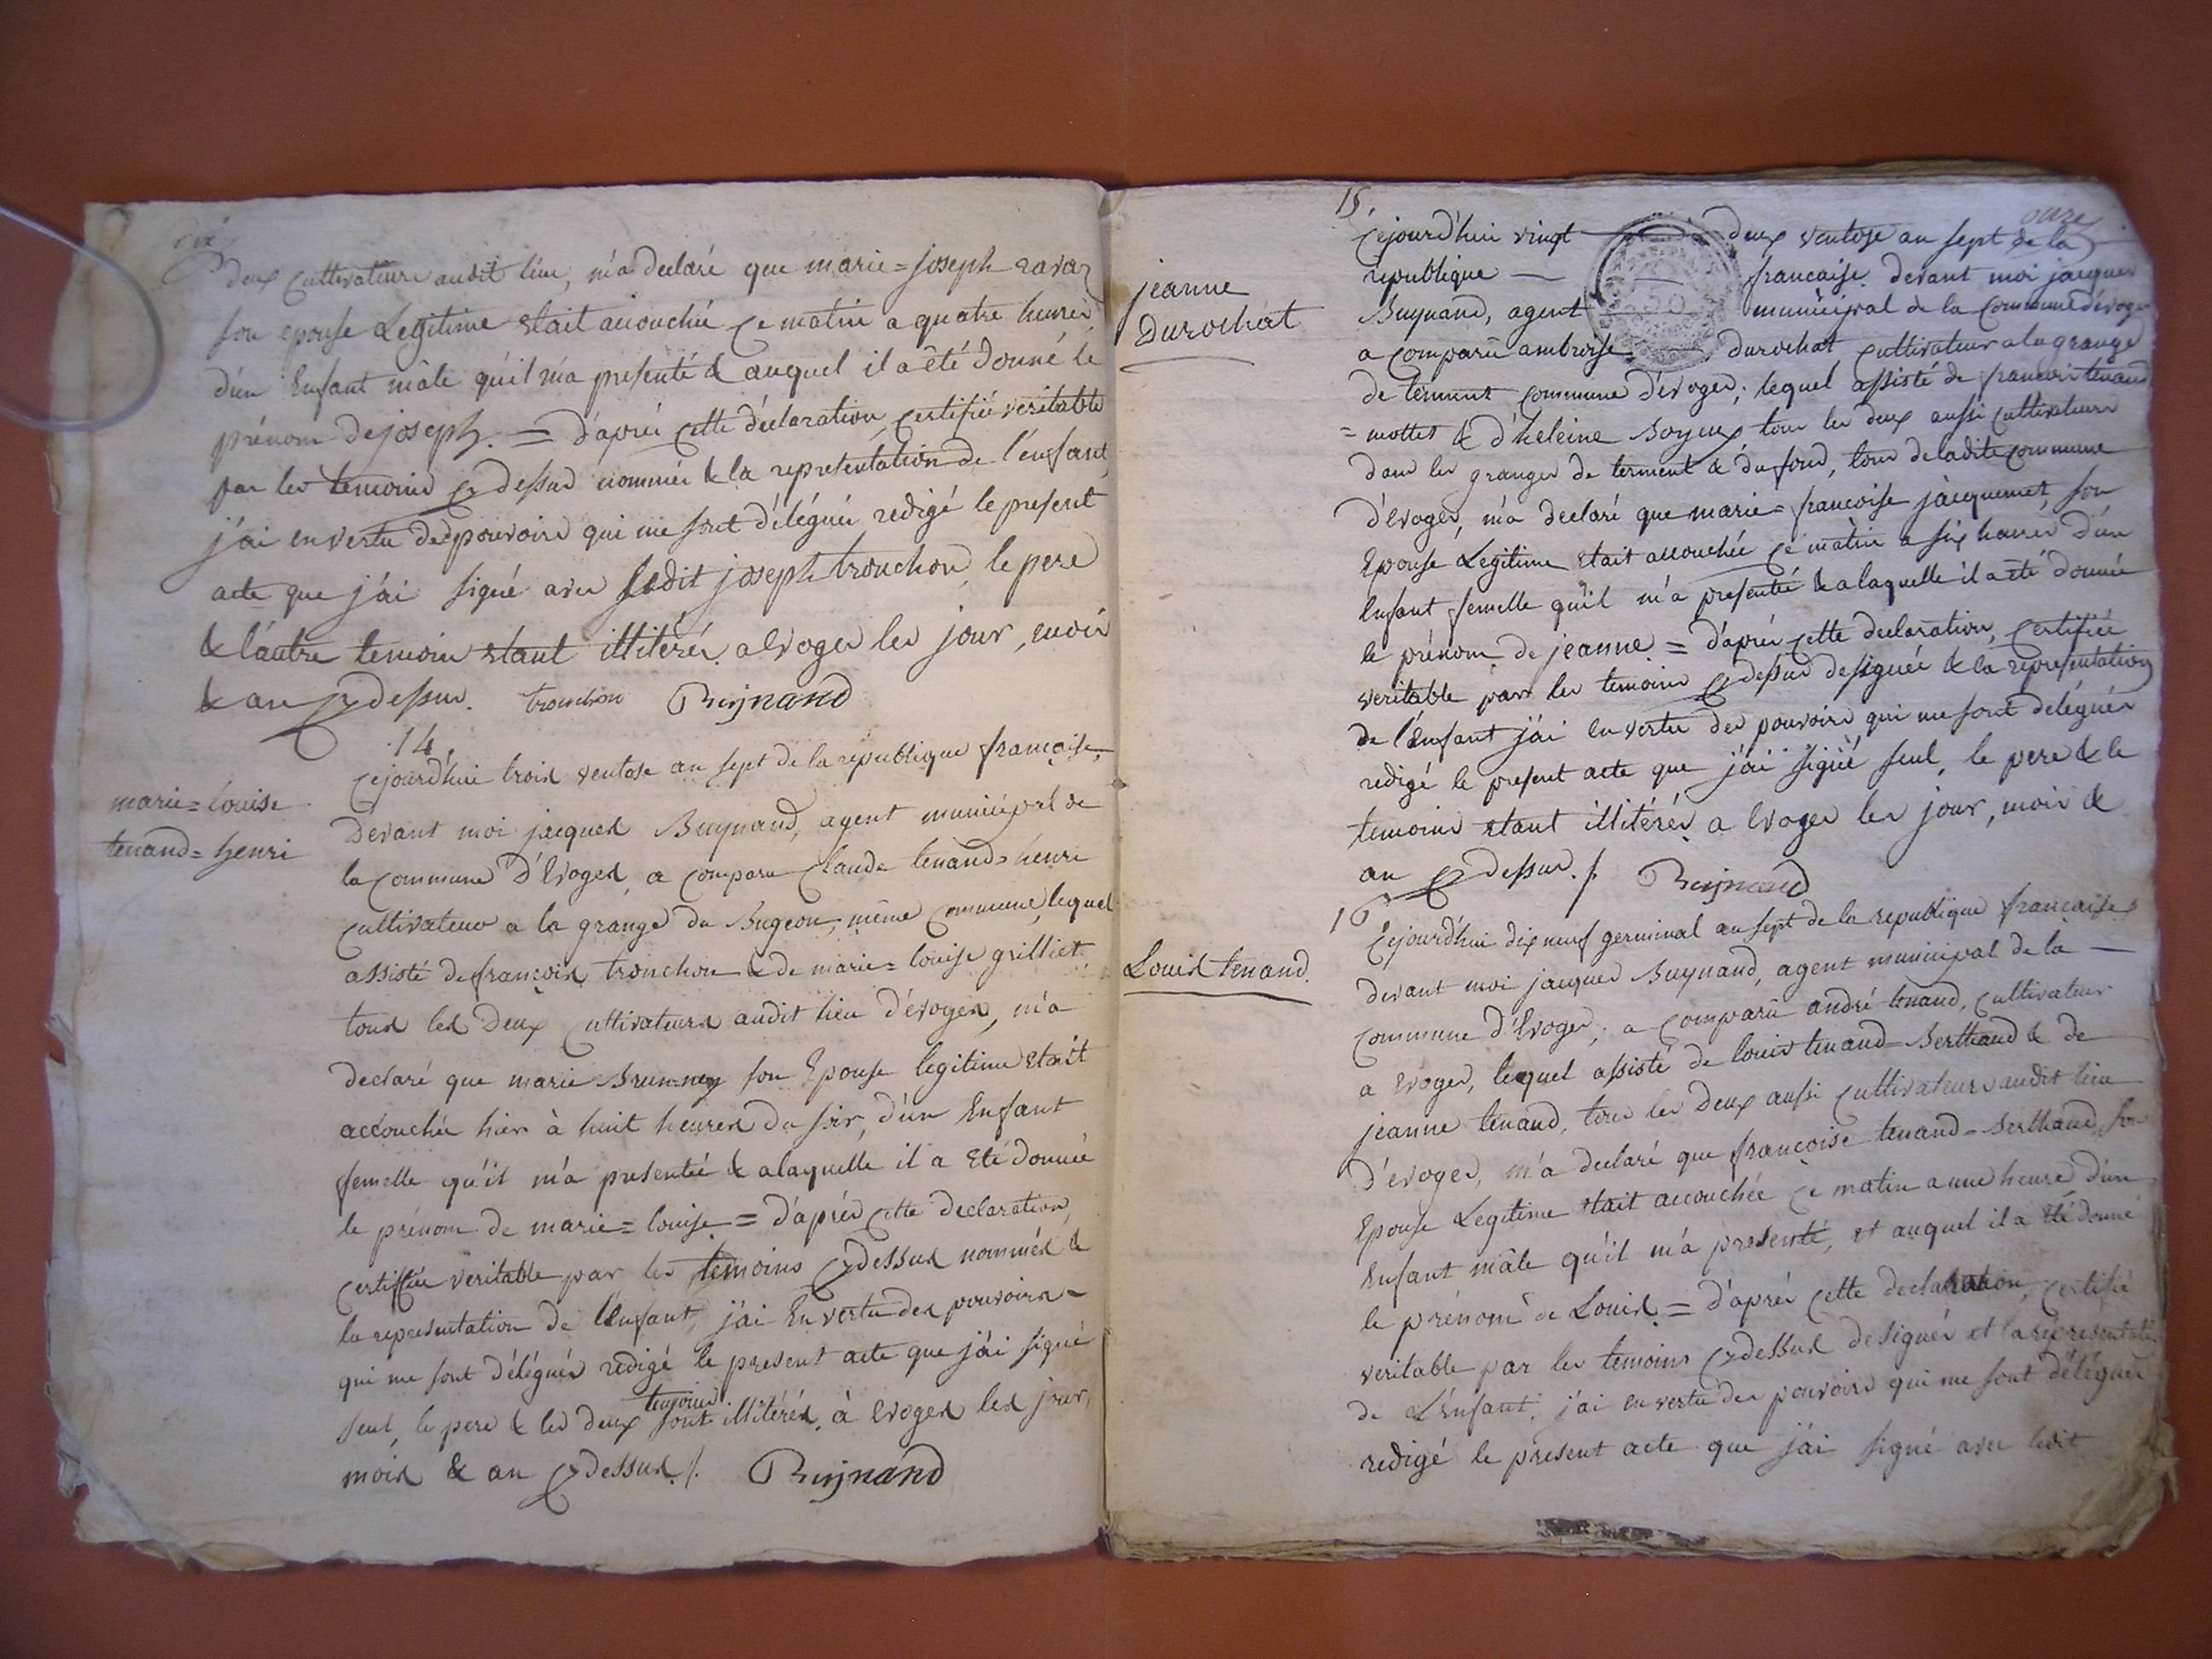 dix
deux cultivateurs audit lieu, m'a declaré que marie=joseph ravaz
son epouse Legitime etait accouchée ce matin a quatre heures
d'un Enfant mâle qu'il m'a presenté & auquel il a été donné le
prénom de joseph. = d'après cette déclaration, certifiée veritable
par les temoins cy dessus nommés & la representation de l'enfant
j'ai en vertu des pouvoirs qui me sont délégués redigé le present
acte que j'ai signé avec ledit joseph tronchon, le pere
& l'autre temoin etant illitérés. a Evoges les jour, mois
& an cy dessus. tronchon Buynand
14.
marie=louise
tenand=henri
Cejourd'hui trois ventose an sept de la republique française,
Devant moi jacques Buynand, agent municipal de
la commune d'Evoges, a comparu Claude tenand=henri
cultivateur a la grange du Bugeon, même commune, lequel
assisté de françois tronchon & de marie=louise grilliet
tous les Deux cultivateurs audit lieu d'évoges, m'a
declaré que marie Brun=ney son Epouse legitime etait
accouchée hier à huit heures du soir, d'un Enfant
femelle qu'il m'a presenté & alaquelle il a eté donnée
le prénom de marie=louise = d'après cette declaration,
certifiée veritable par les temoins cy dessus nommés &
la representation de l'Enfant, j'ai En vertu des pouvoirs
qui me sont délégués redigé le present acte que j'ai signé
seul, le pere & les deux temoins sont illitérés. à Evoges les jour,
mois & an cy dessus ./. Buynand
onze
15.
jeanne
Durochat
Cejourd'hui vingt deux ventose an sept de la
republique — francaise. devant moi jacques
Buynand, agent municipal de la commune d'évoges
a comparû ambroise durochat cultivateur a la grange
de terment commune d'évoges; lequel assisté de francois tenand
=mottet & d'heleine Boyeux tous les deux aussi cultivateurs
dans les granges de terment & du fond, tous de ladite commune
d'évoges, m'a declaré que marie=francoise jacquemet, son
Epouse Legitime etait accouchée ce matin a six heures d'un
Enfant femelle qu'il m'a presenteé & a laquelle il a été donnée
le prénom de jeanne = d'après cette declaration, certifiée
veritable par les temoins cy dessus designées & la representation
de l'Enfant j'ai en vertu des pouvoirs qui me sont délégués
redigé le present acte que j'ai signé seul, le pere & le
temoins etant illitérés a Evoges les jour, mois &
an cy dessus ./. Buynand
16
Louis tenand.
Cejourd'hui dix neuf germinal an sept de la republique francaise
devant moi jacques Buynand, agent municipal de la —
commune d'Evoges, a comparû andré tenand, cultivateur
a Evoges, lequel assisté de louis tenand=Berthand & de
jeanne tenand, tous les Deux aussi cultivateurs audit lieu
d'évoges, m'a declaré que francoise tenand=Berthand, son
Epouse Legitime etait accouchée ce matin a une heure d'un
Enfant mâle qu'il m'a presenté, et auquel il a Eté donné
le prénom de Louis = d'après cette declaration, certifié
veritable par les temoins cy dessus designés et la representation
de L'Enfant, j'ai en vertu des pouvoirs qui me sont délégués
redigé le present acte que j'ai signé avec ledit